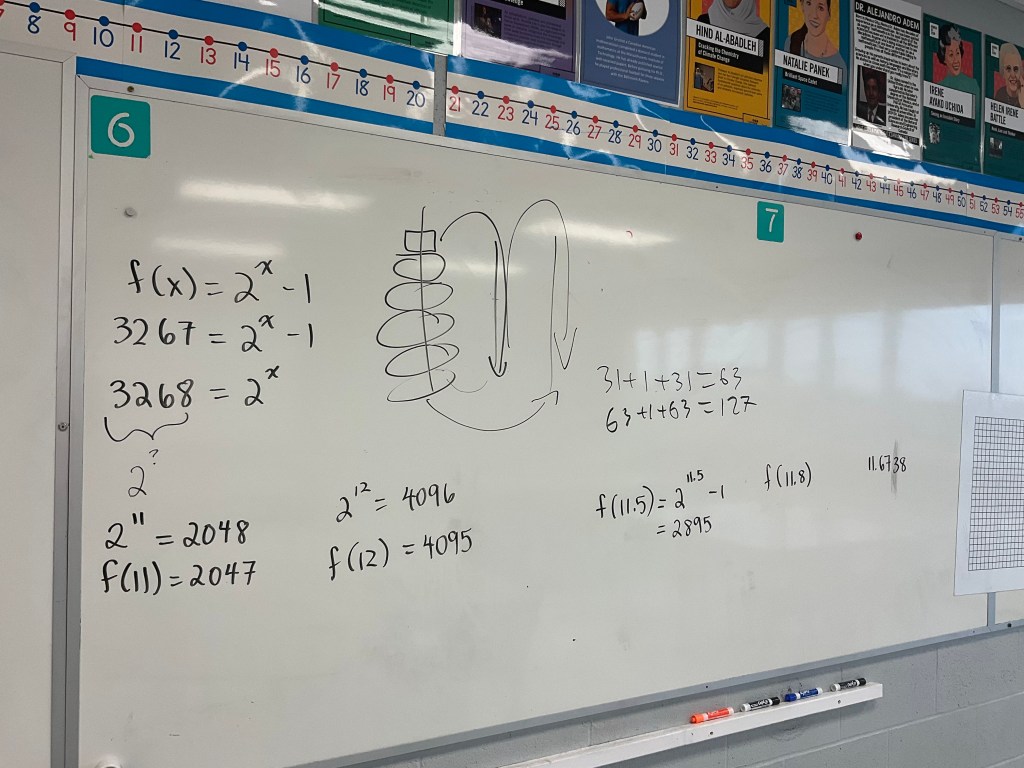 8 9 10 11 12 13 14 15 16 17 18 19 20 21 22 23 24 25 26 27 28 29 30 31 32 33 34 35 36 37 38 39 40 41 42 43 44 45 46 47 48 49 50 51 52 53 54 55
Change
HIND AL-ABADLEH
Cracking the Chemistry
of Climate Change
NATALIE PANEK
DR. ALEJANDRO ADEM
IRENE
AYAKO UCHIDA
HELEN IRENE
BATTLE
6
7
f(x) = 2^x - 1
3267 = 2^x - 1
3268 = 2^x
2^?
2^11 = 2048
f(11) = 2047
2^12 = 4096
f(12) = 4095
31+1+31=63
63+1+63=127
f(11.5) = 2^11.5 - 1
= 2895
f(11.8)
11.6738